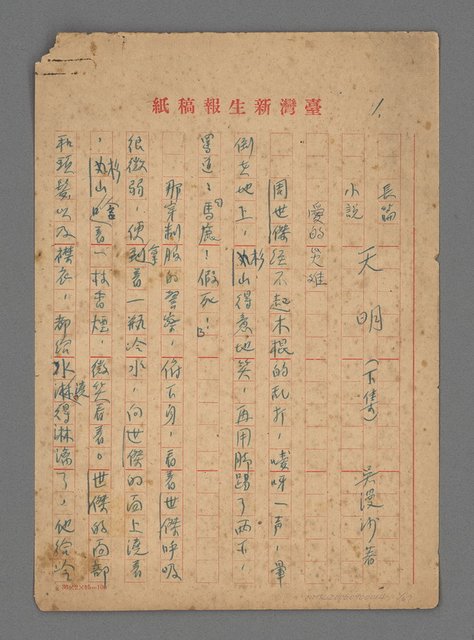 臺灣新生報稿紙
1.
長篇小說 天明 (下集) 吳漫沙著
愛的災難
周世傑經不起木棍的亂打,嘜呀一聲,暈
倒在地上,杉山得意地笑,再用脚踢了兩下,
罵道:「馬鹿!假死!」
那穿制服的警察,俯下身,看看世傑呼吸
很微弱,便拿着一瓶冷水,向世傑的面上澆着
,杉山含着一枝香煙,微笑看着。世傑的面部
和頭髮以及襟衣,都給水澆得淋漓了,他給冷